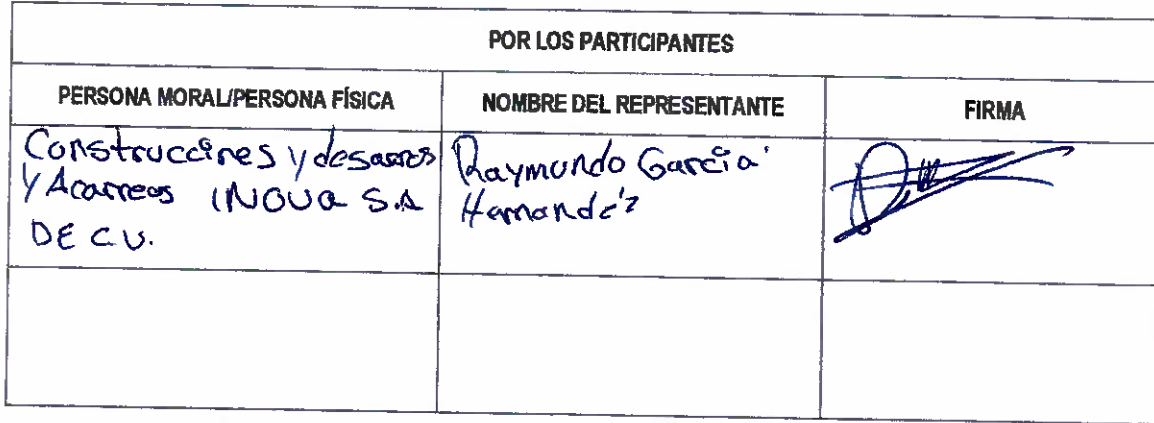 POR LOS PARTICIPANTES
PERSONA MORAL/PERSONA FÍSICA
NOMBRE DEL REPRESENTANTE
FIRMA
Construcciones y desarros
y Acarreos INOVA S.A
DE C.V.
Raymundo García
Hernandéz